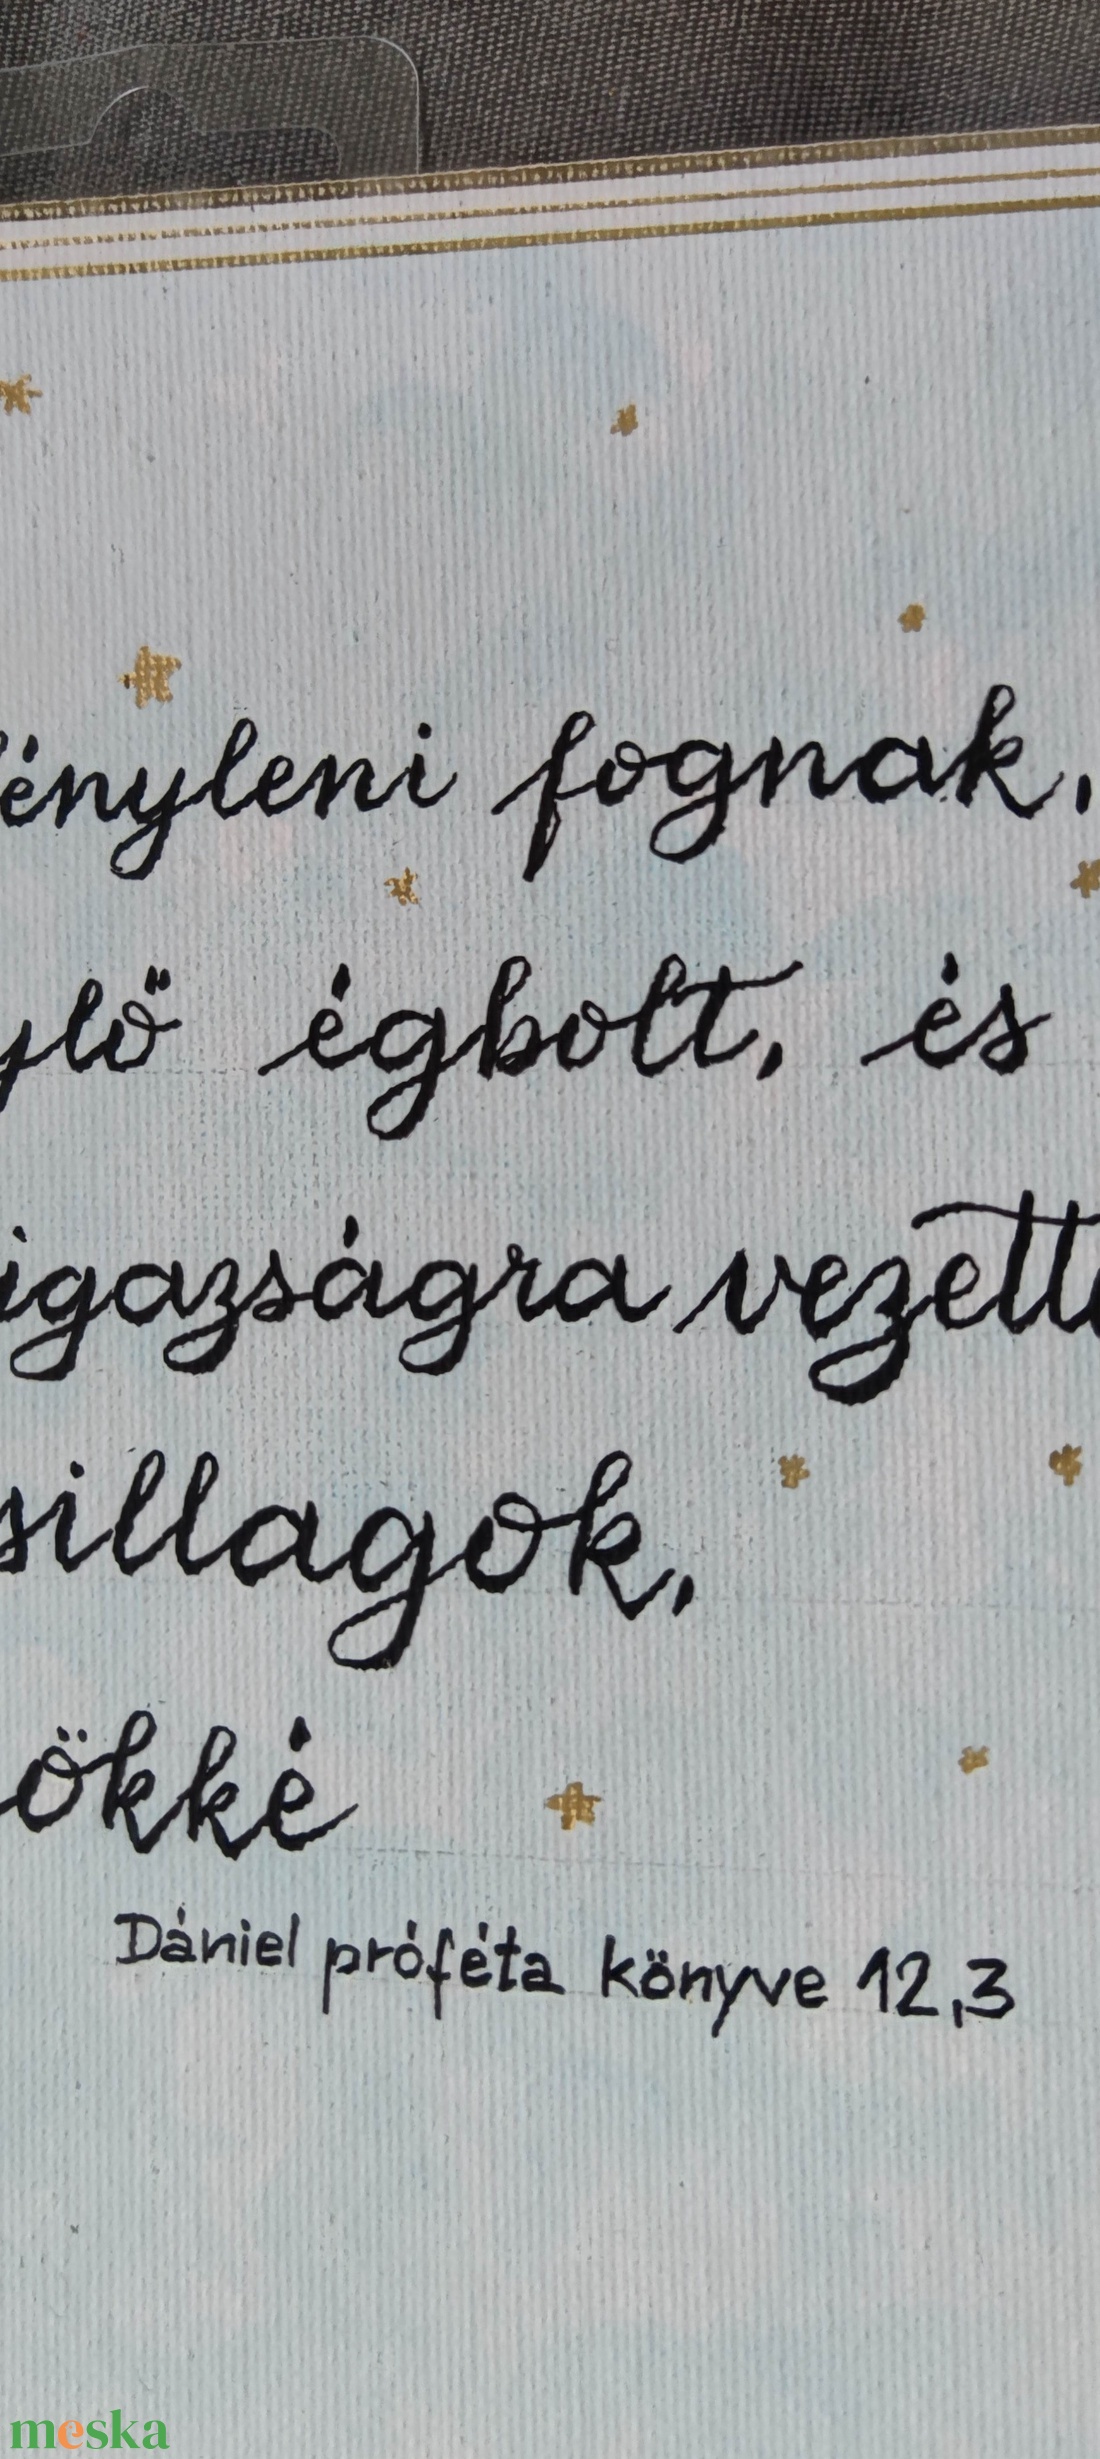 fényleni fognak,
ylő égbolt, és
igazságra vezette
sillagok,
ökké
Dániel próféta könyve 12,3
meska